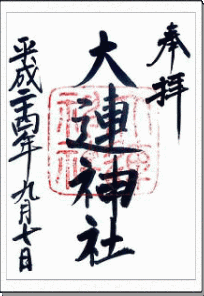 奉拝
大連神社
平成二十四年九月七日